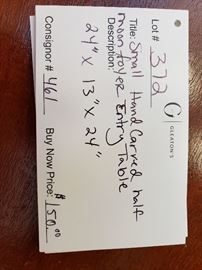 Lot# 372
G
GLEATON'S
Title: Small Hand Carved half
moon foyer Entry Table
Description:
24" X 13" X 24"
Consignor # 461
Buy Now Price: $150.00